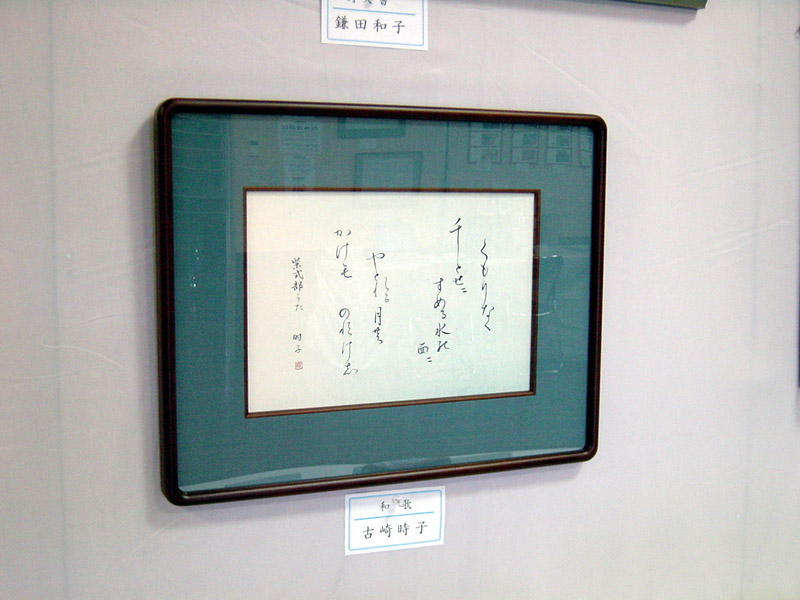 鎌田和子
くもりなく
千とせニ
すめる水の
面ニ
やとれ
る月の
かけも のとけし
紫式部うた 時子
和歌
古崎時子